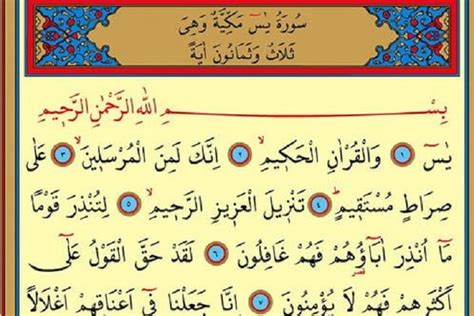 سُورَةُ يٰسٓ مَكِّيَّةٌ وَهِىَ
ثَلَاثٌ وَثَمَانُونَ اٰيَةً
بِسْمِ اللّٰهِ الرَّحْمٰنِ الرَّح۪يمِ
يٰسٓ ﴿١﴾ وَالْقُرْاٰنِ الْحَك۪يمِۙ ﴿٢﴾ اِنَّكَ لَمِنَ الْمُرْسَل۪ينَۙ ﴿٣﴾ عَلٰى
صِرَاطٍ مُسْتَق۪يمٍۜ ﴿٤﴾ تَنْز۪يلَ الْعَز۪يزِ الرَّح۪يمِۙ ﴿٥﴾ لِتُنْذِرَ قَوْمًا
مَٓا اُنْذِرَ اٰبَٓاؤُ۬هُمْ فَهُمْ غَافِلُونَ ﴿٦﴾ لَقَدْ حَقَّ الْقَوْلُ عَلٰٓى
اَكْثَرِهِمْ فَهُمْ لَا يُؤْمِنُونَ ﴿٧﴾ اِنَّا جَعَلْنَا ف۪ٓي اَعْنَاقِهِمْ اَغْلَالًا